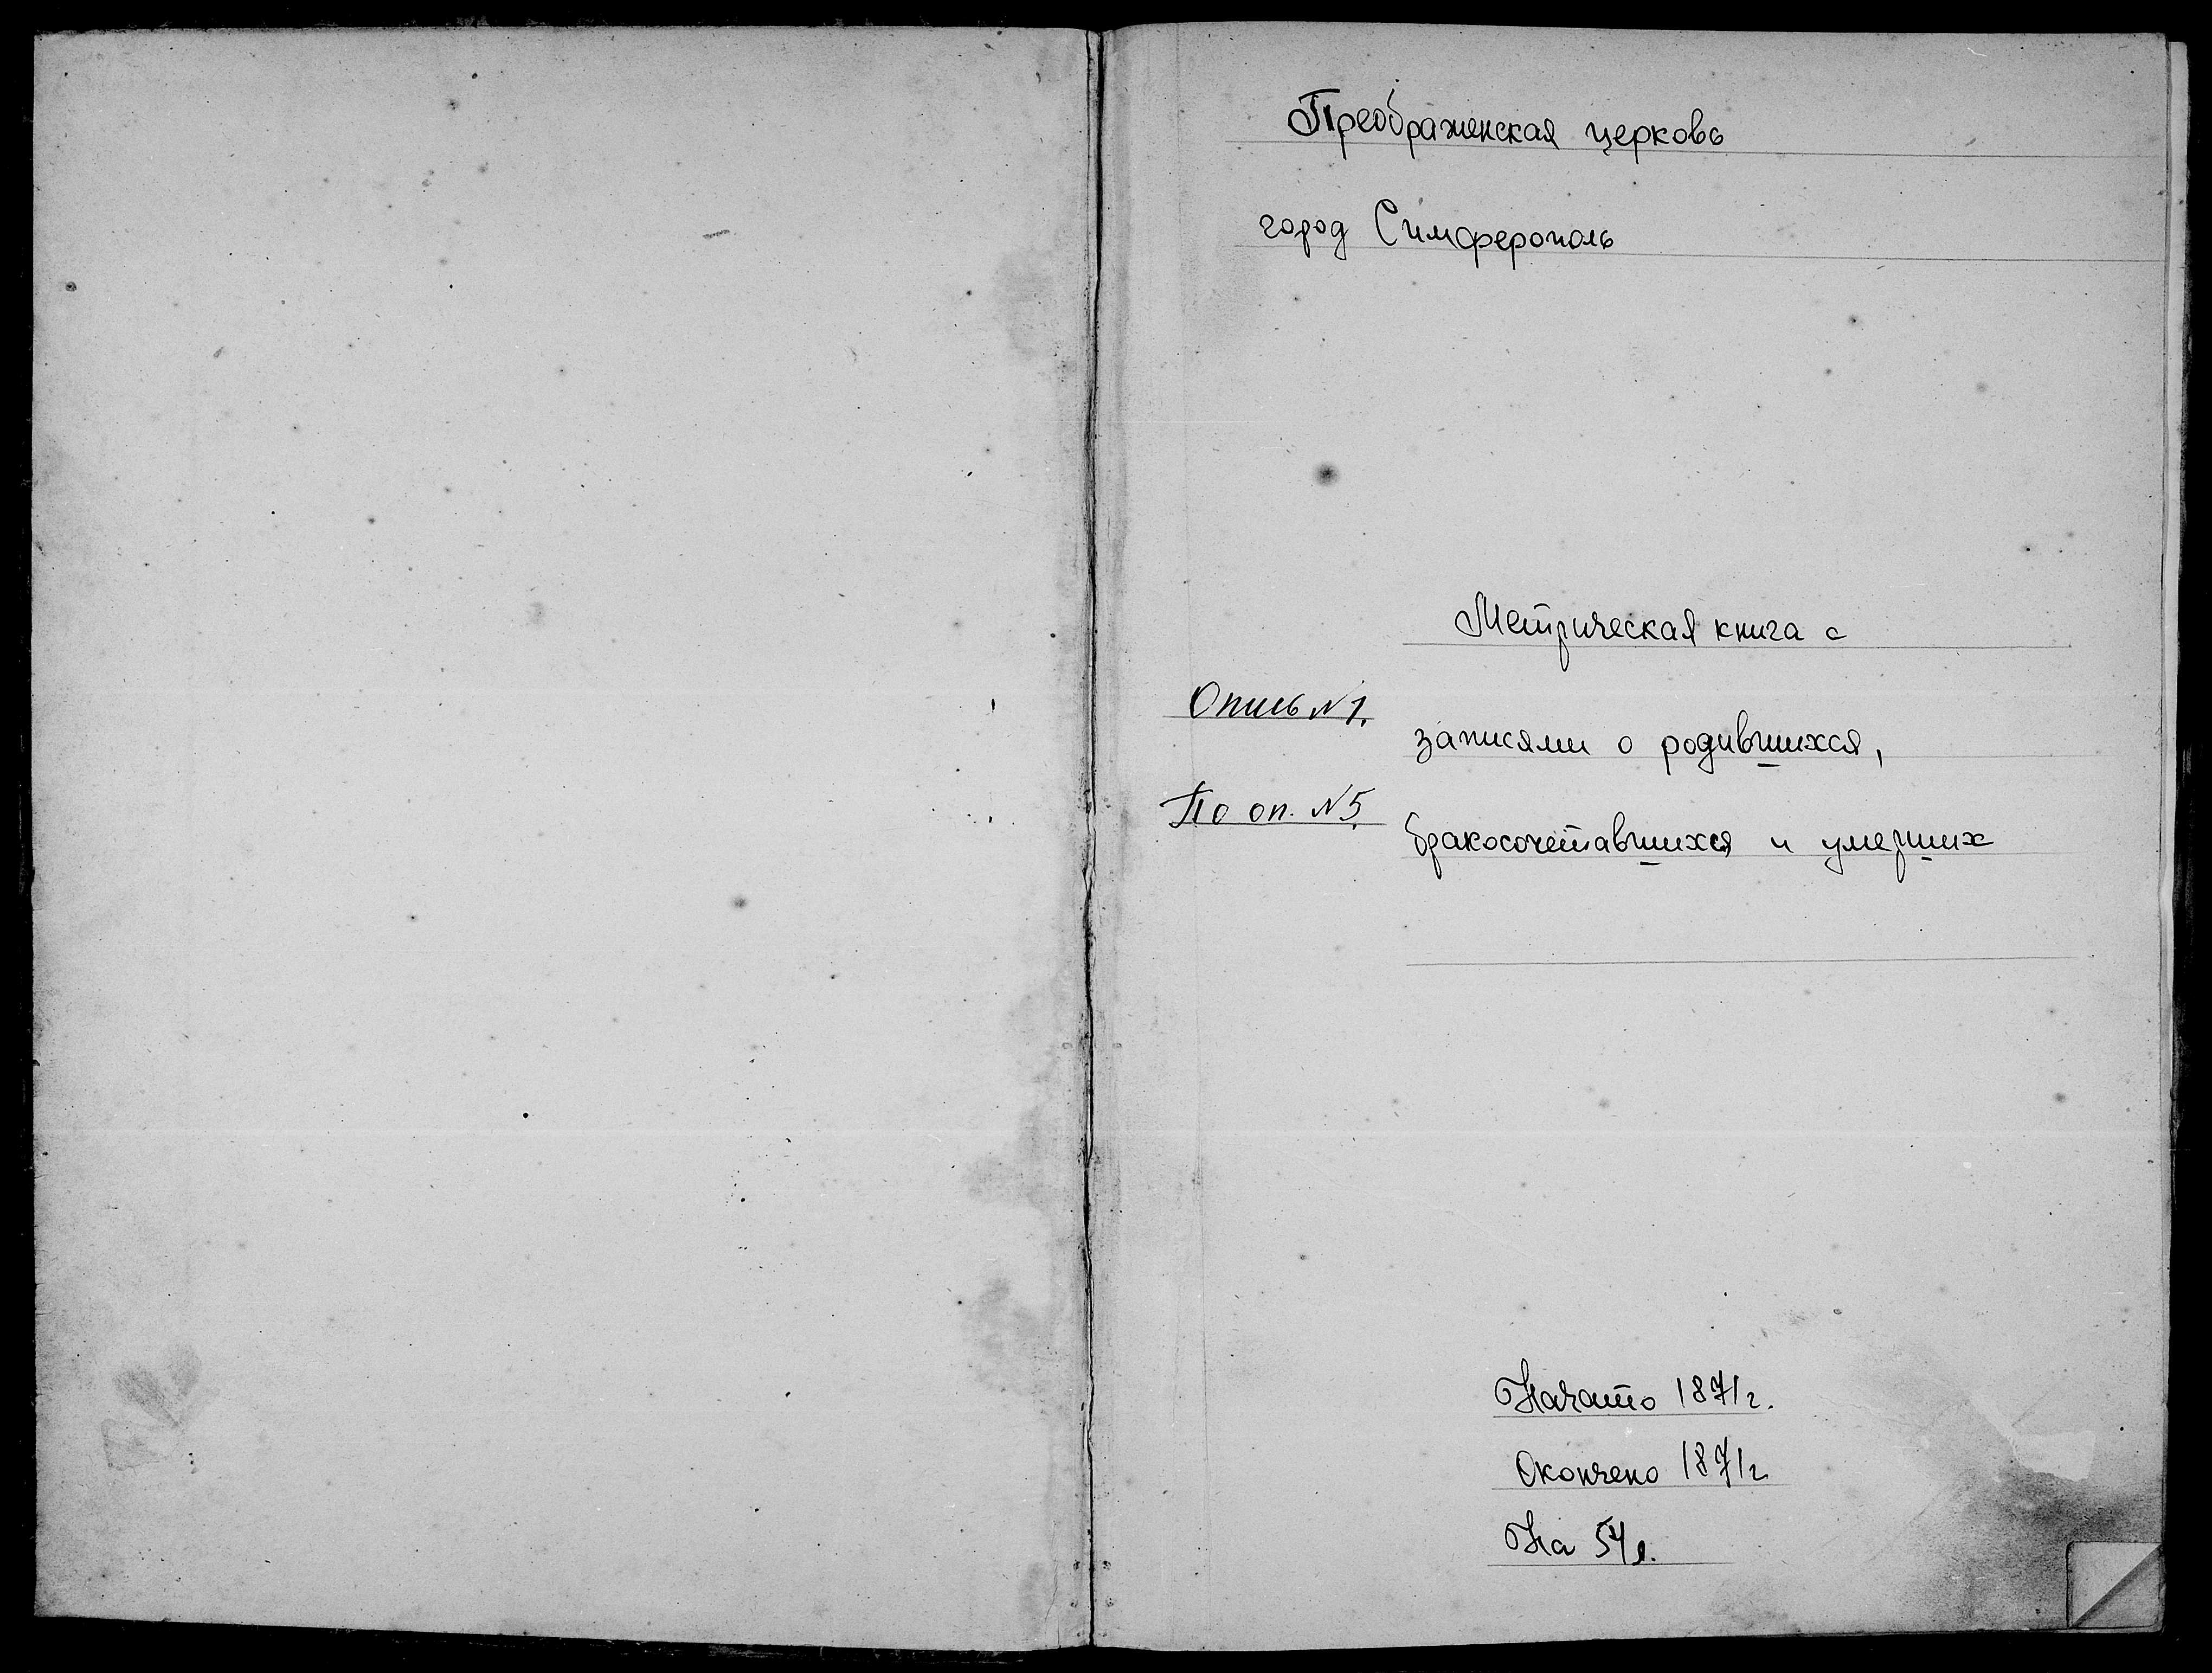 Преображенская церковь
город Симферополь
Метрическая книга с
Опись №1.
записями о родившихся,
По оп. №5.
бракосочетавшихся и умерших
Начато 1871г.
Окончено 1871г.
На 54 л.